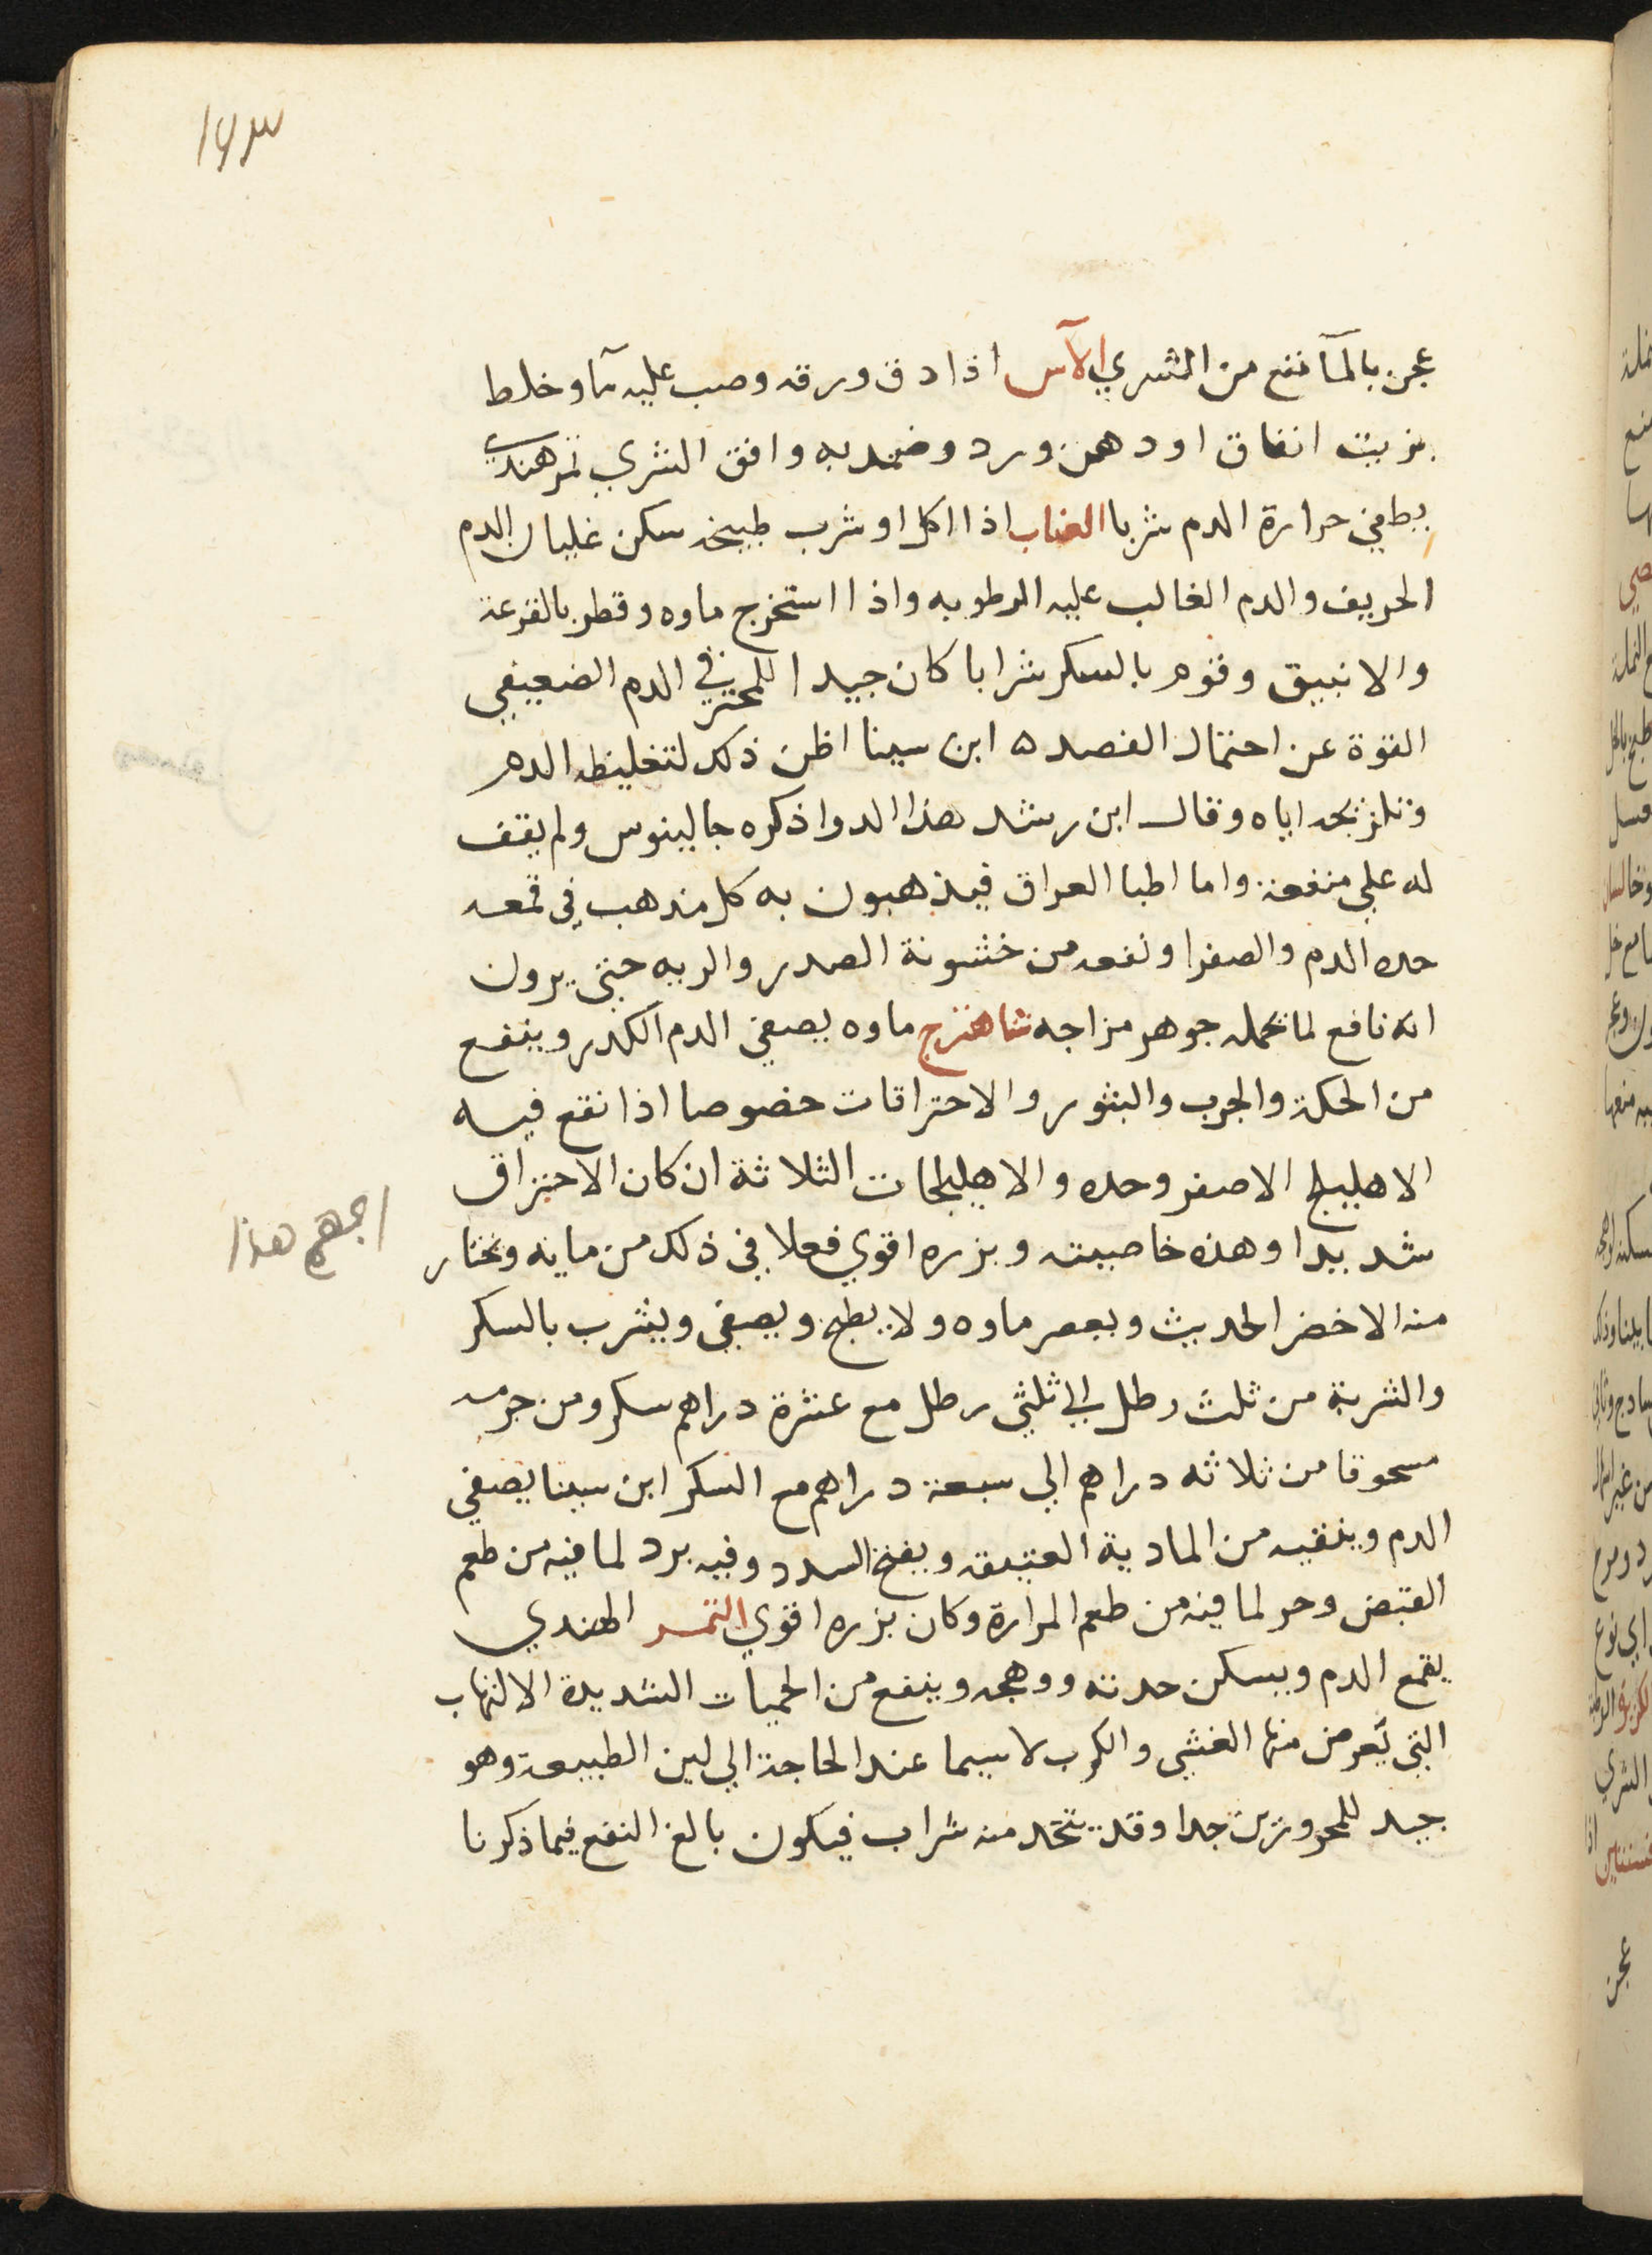 ١٤٣
عجن بالمآ نفع من الشري الآس اذا دق ورقه وصب عليه مآ وخلط
بزيت انفاق او دهن ورد وضمد به وافق الشري تمر هندي
يطفي حرارة الدم شربا العناب اذا اكل او شرب طبيخه سكن غليان الدم
الحريف والدم الغالب عليه الرطوبه واذا استخرج ماوه وقطر بالقرعة
والانبيق وقوم بالسكر شرابا كان جيدا للمحترفي الدم الضعيفي
القوة عن احتمال الفصد ه ابن سينا اظن ذلك لتغليظه الدم
وتلزيجه اياه وقال ابن رشد هذا الدوا ذكره جالينوس ولم يقف
له علي منفعة واما اطبا العراق فيذهبون به كل مذهب في قمعه
حده الدم والصفرا ونفعه من خشونة الصدر والريه حتي يرون
انه نافع لما تحمله جوهر مزاجه شاهترج ماوه يصفي الدم الكدر وينفع
من الحكة والجرب والبثور والاحتراقات خصوصا اذا نقع فيه
الاهليلج الاصفر وحده والاهليلجات الثلاثة ان كان الاحتراق
شديدا وهذه خاصيته وبزره اقوي فعلا في ذلك من مايه وتختار
اجمهم هذا
منه الاخضر الحديث ويعصر ماوه ولا يطبخ ويصفي ويشرب بالسكر
والشربة من ثلث رطل الي ثلثي رطل مع عشرة دراهم سكر ومن جرمه
مسحوقا من ثلاثه دراهم الي سبعة دراهم مع السكر ابن سينا يصفي
الدم وينقيه من المادية العتيقه ويفتح السدد وفيه برد لما فيه من طعم
القبض وحر لما فيه من طعم المرارة وكان بزره اقوي التمر الهندي
يقمع الدم ويسكن حدته ووهجه وينفع من الحميات الشديدة الالتهاب
التي تعرض منها الغشي والكرب لا سيما عند الحاجة الي لين الطبيعة وهو
جيد للمحرورين جدا وقد يتخد منه شراب فيكون بالغ النفع فيما ذكرنا